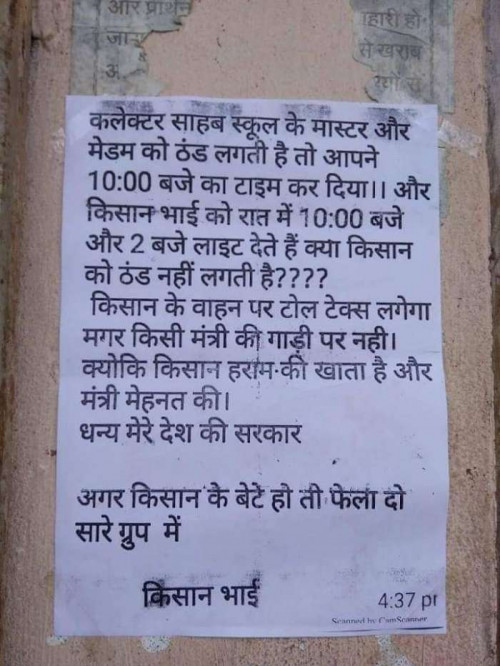 और प्रार्थन
जा
हारी हो
से खराब
कलेक्टर साहब स्कूल के मास्टर और
मेडम को ठंड लगती है तो आपने
10:00 बजे का टाइम कर दिया।। और
किसान भाई को रात में 10:00 बजे
और 2 बजे लाइट देते हैं क्या किसान
को ठंड नहीं लगती है????
किसान के वाहन पर टोल टेक्स लगेगा
मगर किसी मंत्री की गाड़ी पर नही।
क्योकि किसान हराम की खाता है और
मंत्री मेहनत की।
धन्य मेरे देश की सरकार
अगर किसान के बेटे हो तो फेला दो
सारे ग्रुप में
किसान भाई
4:37 pm
Scanned by CamScanner